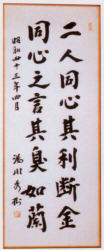 二人同心其利断金
同心之言其臭如蘭
昭和四十三年四月
湯川秀樹